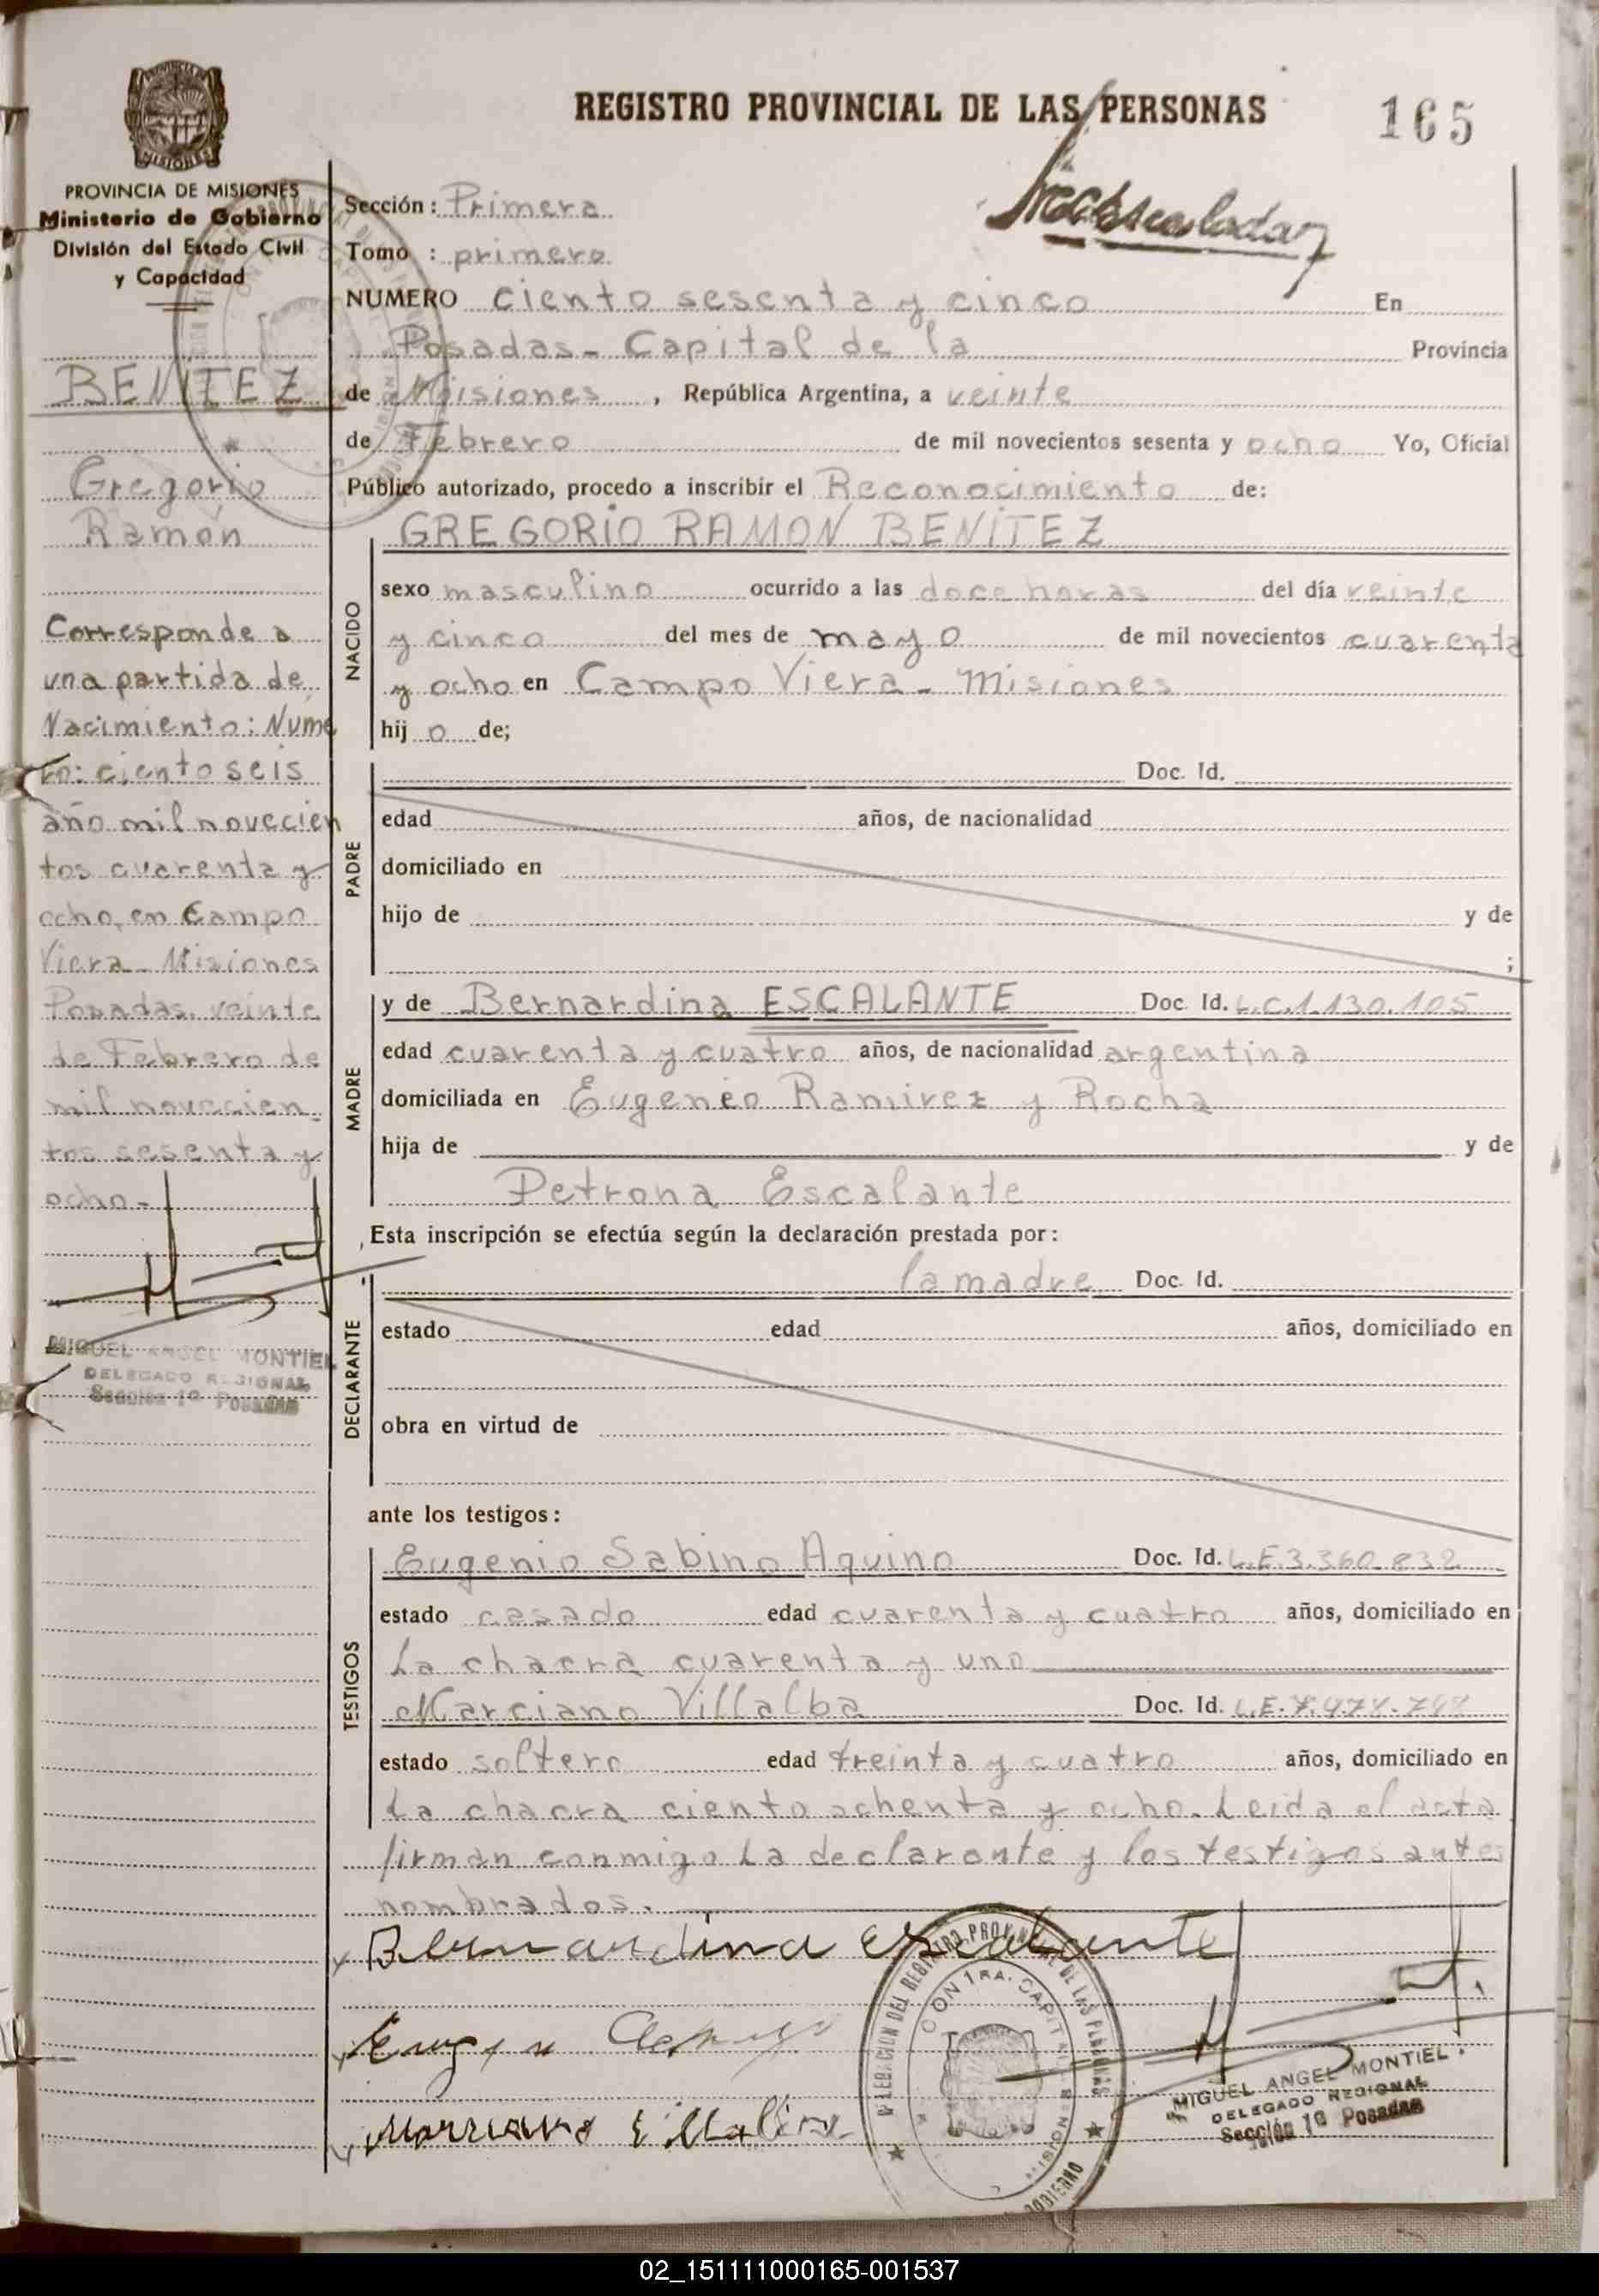 REGISTRO PROVINCIAL DE LAS PERSONAS
165
PROVINCIA DE MISIONES
Ministerio de Gobierno
División del Estado Civil
y Capacidad
BENITEZ
Gregorio
Ramón
Corresponde a
una partida de
Nacimiento: Nume
ro: ciento seis
año mil novecien
tos cuarenta y
ocho, en Campo
Viera - Misiones
Posadas, veinte
de Febrero de
mil novecien-
tos sesenta y
ocho -
MIGUEL ANGEL MONTIEL
DELEGADO REGIONAL
Sección 1ª Posadas
Sección: Primera
Tomo : primero
NUMERO ciento sesenta y cinco En
Posadas - Capital de la Provincia
de Misiones, República Argentina, a veinte
de Febrero de mil novecientos sesenta y ocho Yo, Oficial
Público autorizado, procedo a inscribir el Reconocimiento de:
NACIDO
GREGORIO RAMON BENITEZ
sexo masculino ocurrido a las doce horas del día veinte
y cinco del mes de mayo de mil novecientos cuarenta
y ocho en Campo Viera - Misiones
hij o de;
PADRE
Doc. Id.
edad años, de nacionalidad
domiciliado en
hijo de y de
;
MADRE
y de Bernardina ESCALANTE Doc. Id. L.C.1.130.105
edad cuarenta y cuatro años, de nacionalidad argentina
domiciliada en Eugenio Ramirez y Rocha
hija de y de
Petrona Escalante
Esta inscripción se efectúa según la declaración prestada por:
DECLARANTE
la madre Doc. Id.
estado edad años, domiciliado en
obra en virtud de
ante los testigos:
TESTIGOS
Eugenio Sabino Aquino Doc. Id. L.E.3.360.832
estado casado edad cuarenta y cuatro años, domiciliado en
La chacra cuarenta y uno
Marciano Villalba Doc. Id. L.E.
estado soltero edad treinta y cuatro años, domiciliado en
La chacra ciento ochenta y ocho. Leida el acta
firman conmigo La declarante y los testigos antes
nombrados.
Bernardina Escalante
Marciano Villalba
MIGUEL ANGEL MONTIEL
DELEGADO REGIONAL
Sección 1ª Posadas
02_151111000165-001537